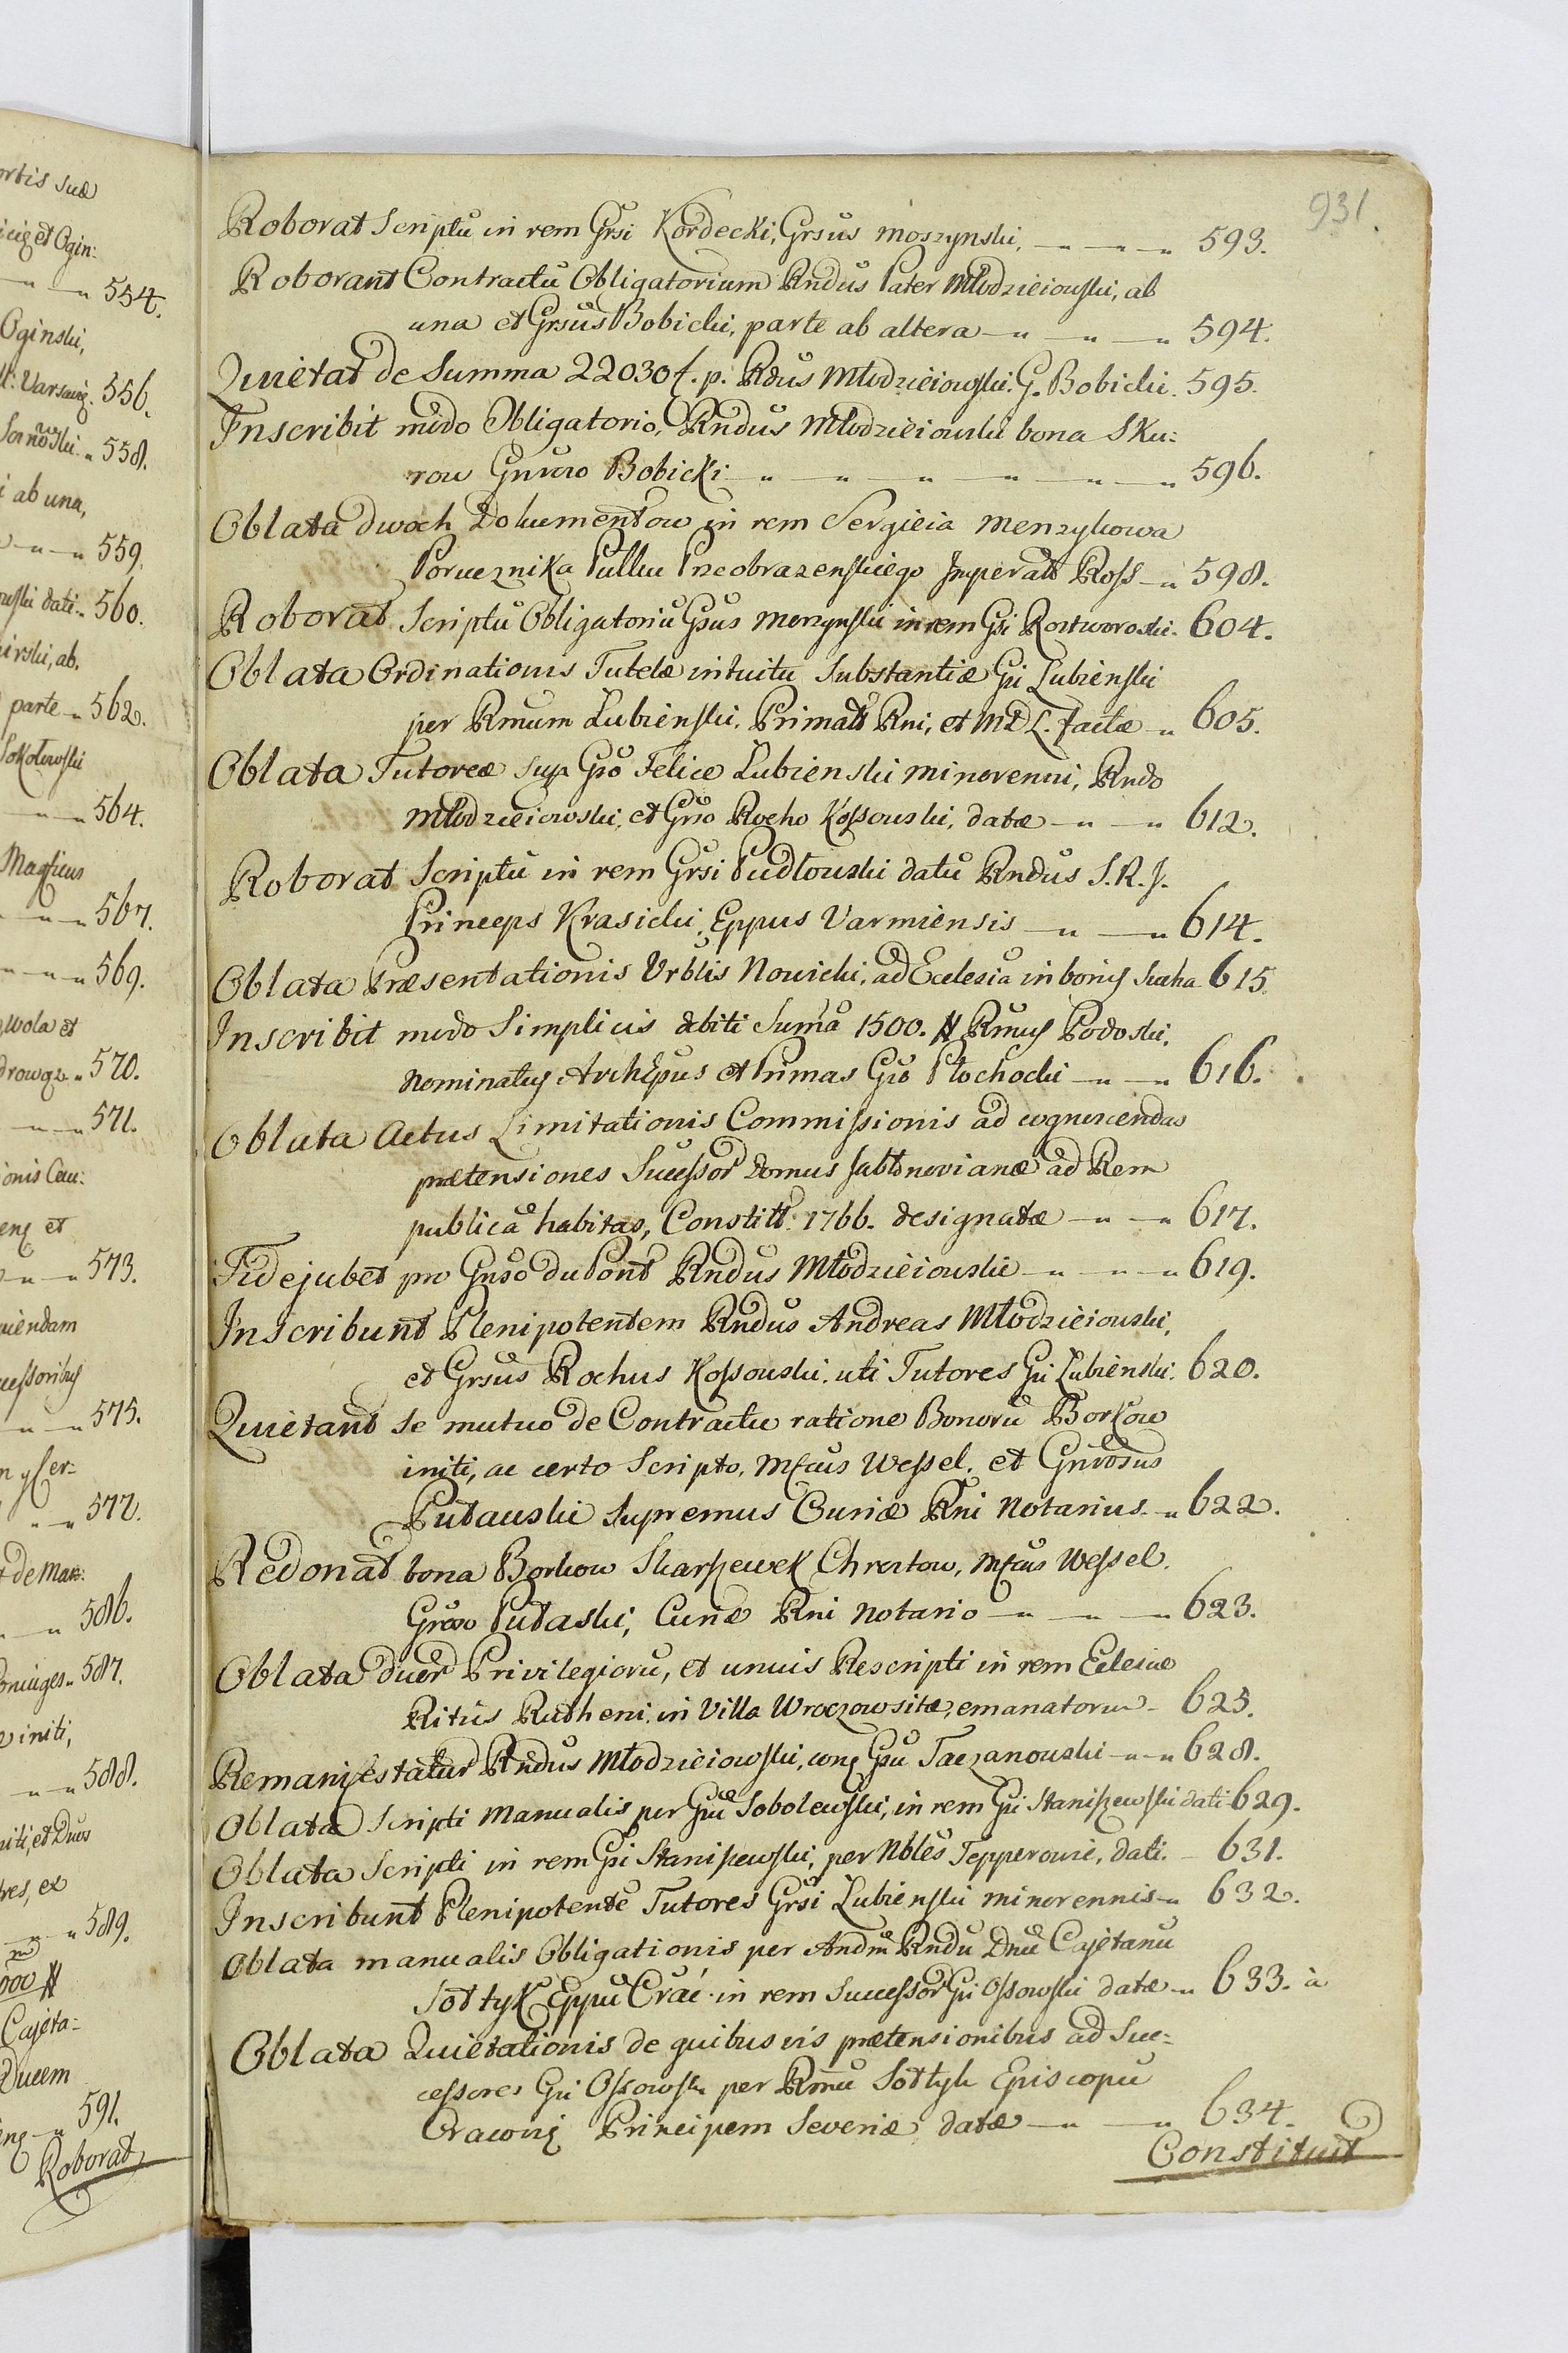 931.
Roborat Scriptũ in rem Grsi Kordecki, Grsus Moszynski, 593.
Roborant Contractũ Obligatorium Rndus Pater Młodzieiowski, ab
una et Grsus Bobicki, parte ab altera 594.
Quietat de Summa 22030 f. p. Rdus Młodzieiowski. G. Bobicki. 595.
Inscribit mõdo Obligatorio, Rndus Młodzieiowski bona Sku:
row Gnroso Bobicki 596.
Oblata dwoch Dokumentow in rem Sergieia Menzykowa
Porucznika Pułku Preobrazenskiego Imperat Ross 598.
Roborat Scriptũ Obligatoriũ Gsus Morzynski in rem Gsi Roztworoski. 604.
Oblata Ordinationis Tutelæ intuitu Substantiæ Gsi Lubienski
per Rmum Lubienski, Primatt Rni, et MDL. factæ 605.
Oblata Tutoreæ sup Gso Felice Lubienski minorenni, Rndo
Młodzieiowski, et Grso Rocho Kossowski, datæ 612.
Roborat Scriptũ in rem Grsi Pudłowski datũ Rndus S. R. J.
Princeps Krasicki, Eppus Varmiensis 614.
Oblata Præsentationis Vrblis Nowicki, ad Ecclesiã in bonis Sucha 615.
Inscribit mõdo Simplicis debiti Summã 1500. # Rmus Podoski,
Nominatus ArchEpus et Primas Gso Płochocki 616.
Oblata Actus Limitationis Commissionis ad cognoscendas
prætensiones Successor Domus Jabłonovianæ ad Rem
publicã habitas, Constitt: 1766. designatæ 617.
Fidejubet pro Gnso duPont Rndus Młodzieiowski 619.
Inscribunt Plenipotentem Rndus Andreas Młodzieiowski,
et Grsus Rochus Kossowski, uti Tutores Gsi Lubienski. 620.
Quietant se mutuo de Contractu ratione Bonorũ Borkow
initi, ac certo Scripto, Mfcus Wessel, et Gnrosus
Putawski Supremus Curiæ Rni Notarius 622.
Redonat bona Borkow Skarszewek Chrostow, Mfcus Wessel.
Groso Putaski, Curiæ Rni Notario 623.
Oblata duor Privilegiorũ, et unuis Rescripti in rem Eclesiæ
Ritus Rutheni, in Villa Wroczow sitæ, emanatorum 625.
Remanifestatur Rndus Młodzieiowski, cong Gsũ Taczanowski 628.
Oblata Scripti Manualis per Gsũ Sobolewski, in rem Gsi Staniszewski dati 629.
Oblata Scripti in rem Gsi Staniszewski, per Nbles Tepperowie, dati. 631.
Inscribunt Plenipotentẽ Tutores Grsi Lubienski minorennis 632.
Oblata manualis Obligationis per Andm Rndũ Dnũ Cajetanũ
Sołtyk Eppũ Crac. in rem Successor Gsi Ossowski datæ 633. a
Oblata Quietationis de quibusvis prætensionibus ad Suc:
cessores Gsi Ossowski per Rmũ Sołtyk Episcopũ
Cracong Principem Severiæ datæ 634.
Constituit